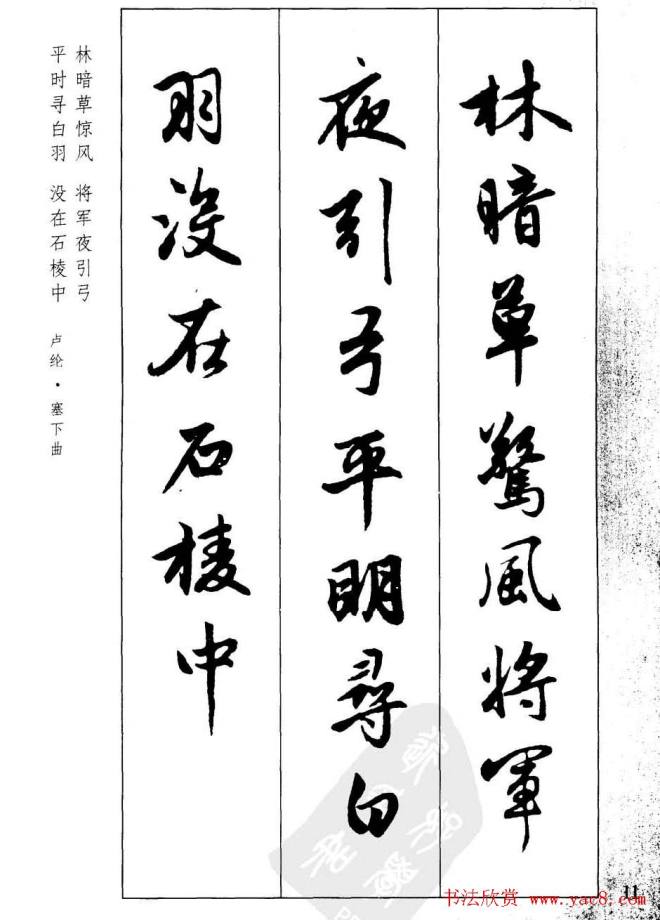 林暗草驚風將軍
夜引弓平明尋白
羽沒在石棱中
林暗草惊风　将军夜引弓
平时寻白羽　没在石棱中　卢纶·塞下曲
11
书法欣赏 www.yac8.com